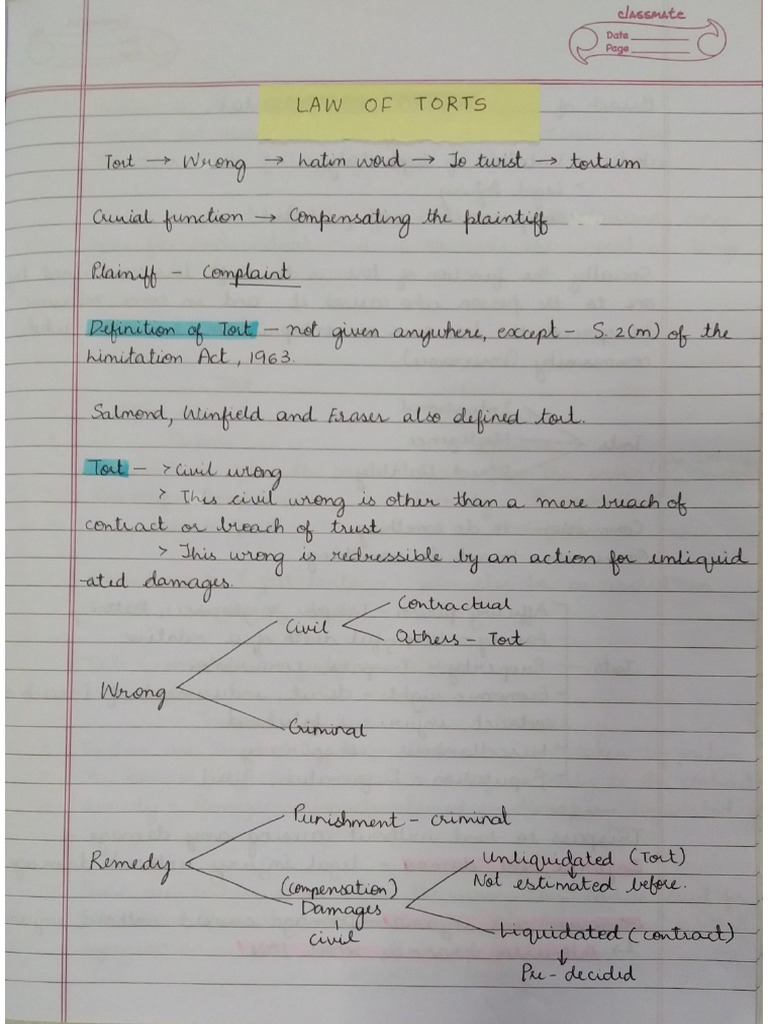 classmate
Date
Page
LAW OF TORTS
Tort → Wrong → Latin word → To twist → tortum
Crucial function → Compensating the plaintiff
Plainiff - Complaint
Definition of Tort - not given anywhere, except - S. 2(m) of the
Limitation Act, 1963.
Salmond, Winfield and Fraser also defined tort.
Tort - > Civil wrong
> This civil wrong is other than a mere breach of
contract or breach of trust
> This wrong is redressible by an action for unliquid
-ated damages.
Contractual
Civil
Others - Tort
Wrong
Criminal
Punishment - criminal
Remedy
Unliquidated (Tort)
↓
Not estimated before.
(compensation)
Damages
civil
Liquidated (contract)
↓
Pre-decided